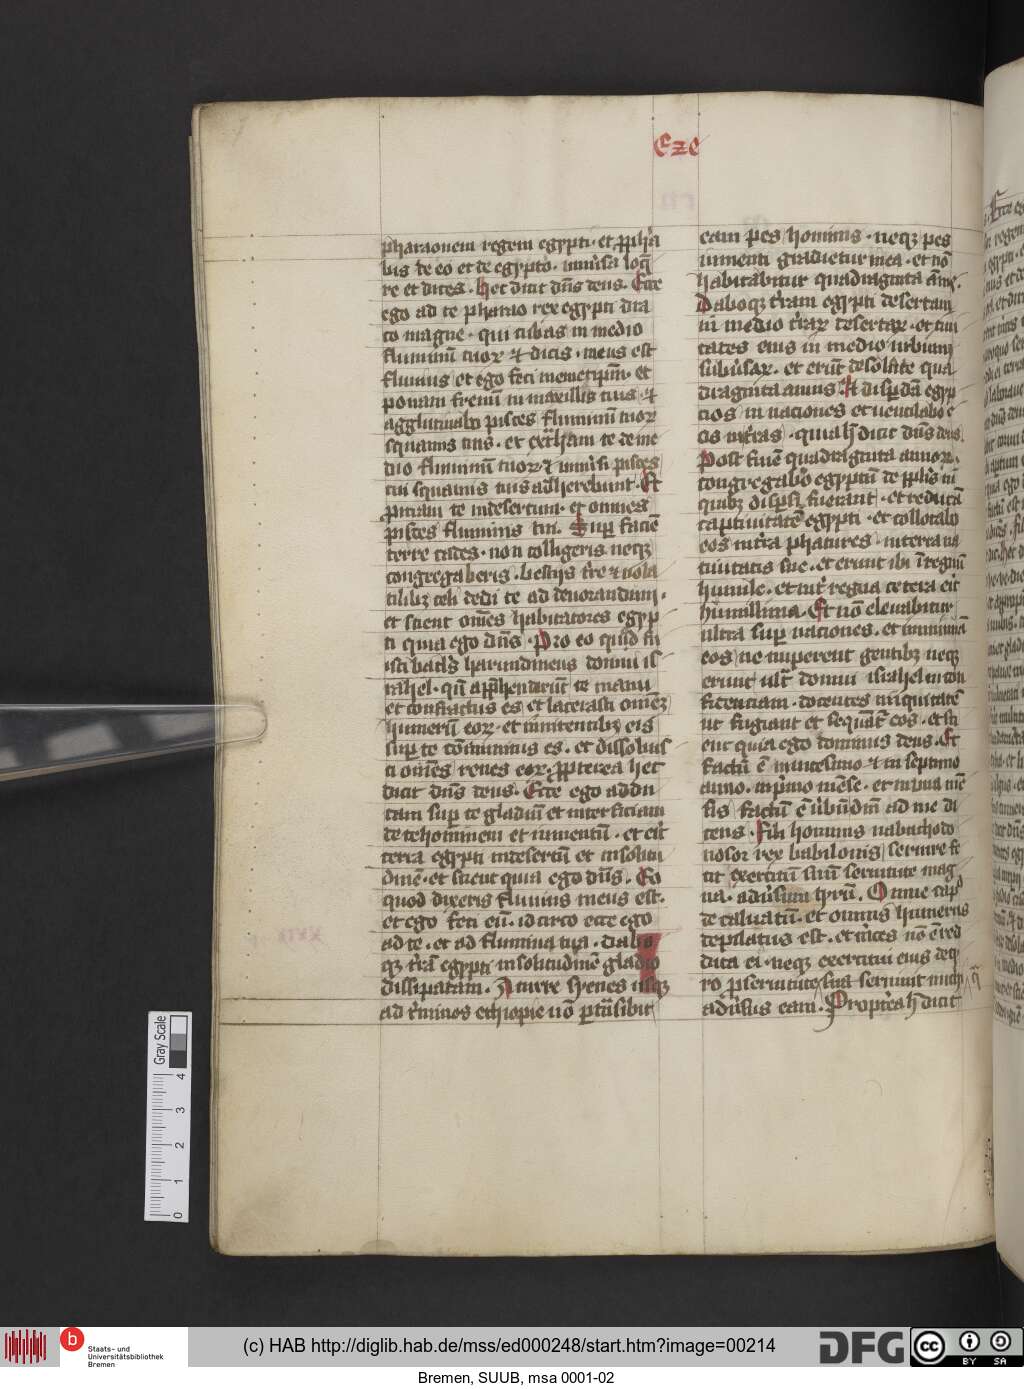 Eze
pharaonem regem egypti · et ꝓph̄a
bis de eo et de egypto · uniu̓sa loq̄
re et dices · Hec dicit dn̄s deus · Ecce
ego ad te pharao rex egypti dra
co magne · qui cubas in medio
fluminū tuoꝝ ⁊ dicis · meus est
fluuius et ego feci memetip̄m · et
ponam frenū in maxillis tuis · ⁊
agglutinabo pisces fluminū tuoꝝ
squamis tuis · et ext̓ham te de me
dio fluminū tuoꝝ · ⁊ uniu̓si pisces
tui squamis tuis adherebunt · Et
ꝓiciam te in desertum · et omnes
pisces fluminis tui · Suꝑ faciē
terre cades · non colligeris neqꝫ
congregaberis · bestijs t̓re ⁊ uola
tilibꝫ celi dedi te ad deuorandum ·
et scient om̄es habitatores egyp
ti quia ego dn̄s · Pro eo quod fu
isti bacl̓s harundineus domui is
rahel · qn̄ app̄henderūt te manu
et confractus es et lacerasti omēꝫ
humerū eoꝝ · et innitentibꝫ eis
suꝑ te cōminutus es · et dissoluis
ti om̄es renes eoꝝ · ꝓpterea hec
dicit dn̄s deus · Ecce ego addu
cam suꝑ te gladiū et interficiam
de te hominem et iumentū · et erit
terra egypti in desertū et in solitu
dinē · et scient quia ego dn̄s · Eo
quod dixeris fluuius meus est ·
et ego feci eū · idcirco ecce ego
ad te · et ad flumina tua · dabo
qꝫ t̓rā egypti in solitudinē gladio
dissipatam · A turre syenes usqꝫ
ad t̓minos ethiopie nō ꝑtn̄sibit
eam pes hominis · neqꝫ pes
iumenti gradietur in ea · et nō
habitabitur quadraginta ānis ·
Daboqꝫ t̓ram egypti desertam
in medio t̓raꝝ desertaꝝ · et ciui
tates eius in medio urbium
subu̓saꝝ · et erūt desolate qua
draginta annis · Et disꝑdā egyp
cios in naciones et uentilabo e
os in t̓ras · quia h̄ dicit dn̄s deus
Post finē quadraginta annoꝝ ·
congregabo egyptū de ppl̓is in
quibꝫ disꝑsi fuerant · et reducā
captiuitatē egypti · et collocabo
eos in t̓ra phatures · in terra na
tiuitatis sue · et erunt ibi ī regnū
humile · et int̓ regna cetera eit̓
humillima · Et nō eleuabitur
ultra suꝑ naciones · et inminuā
eos ne imperent gentibꝫ neqꝫ
erunt ult̓ domui israhel in con
ficenciam · docentes iniquitatē
ut fugiant et sequāt̓ eos · et sci
ent quia ego dominus deus · Et
factū ē in uicesimo ⁊ in septimo
anno · in p̓mo mēse · et in una mē
sis factū ē u̓bū dn̄i ad me di
cens · Fili hominis nabuchodo
nosor rex babilonis seruire fe
cit exercitū suū seruitute mag
na · adu̓sum tyrū · Omne capᵈ
decaluatū · et omnis humerus
depilatus est · et m̓ces nō ē red
dita ei · neqꝫ exercitui eius de ty
ro ꝓ seruitute qua seruiuit michi
adu̓sus eam · Propt̓ea h̄ dicit
Gray Scale
0 1 2 3 4
b Staats- und
Universitätsbibliothek
Bremen
(c) HAB http://diglib.hab.de/mss/ed000248/start.htm?image=00214
DFG
cc BY SA
Bremen, SUUB, msa 0001-02